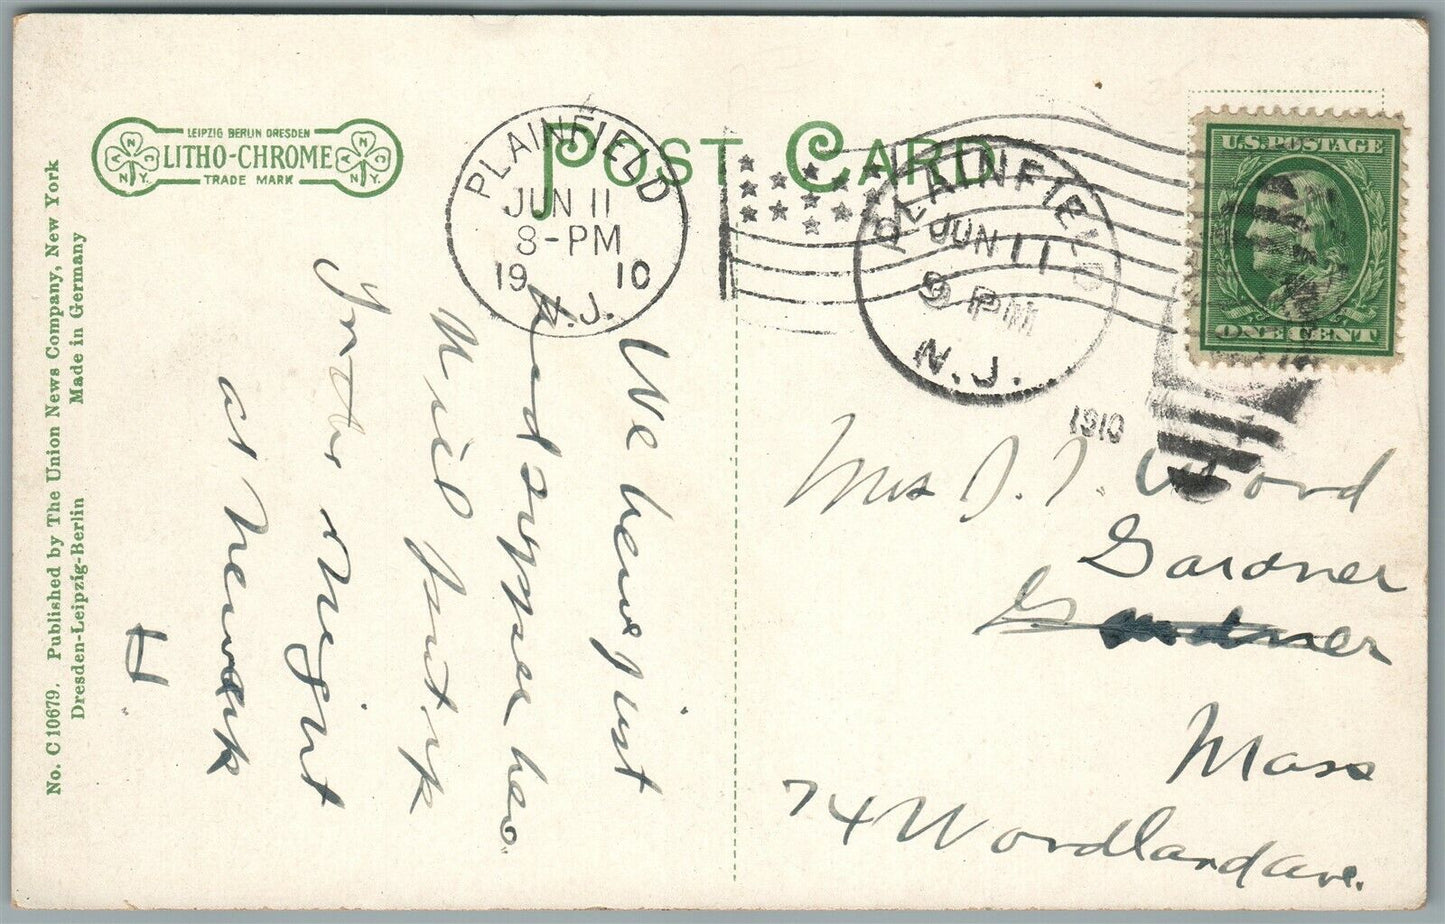 POST CARD
LEIPZIG BERLIN DRESDEN
LITHO-CHROME
TRADE MARK
A N C N.Y.
A N C N.Y.
No. C 10679. Published by The Union News Company, New York
Dresden-Leipzig-Berlin Made in Germany
PLAINFIELD
JUN 11
8-PM
19 10
N.J.
PLAINFIELD
JUN 11
9 PM
N.J.
1910
U.S. POSTAGE
ONE CENT
We have just
had supper here
Will put up
for the night
at Newark
H.
Mrs J. T. Word
Gardner
Gardner
Mass
74 Woodland ave.